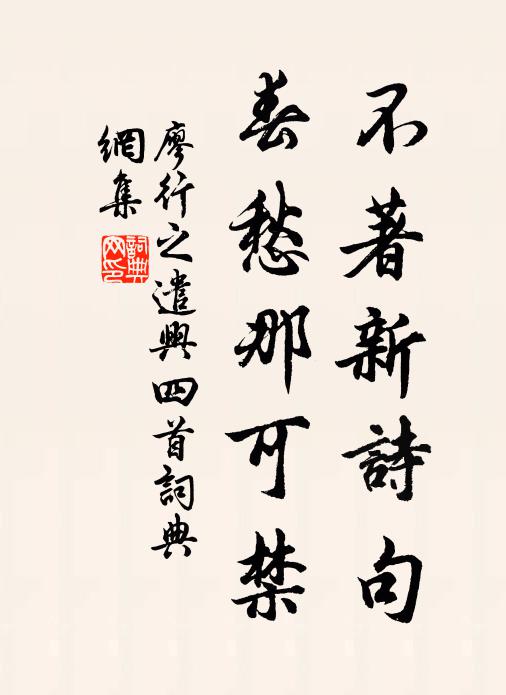 不著新詩句
春愁那可禁
廖行之遣興四首詞典
網集
詞典
网印